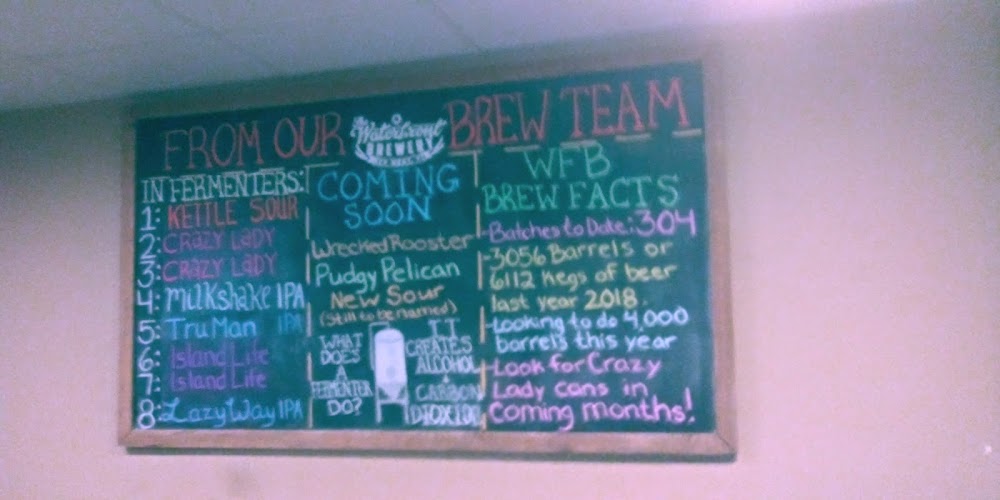 FROM OUR
Waterfront
BREWERY
BREW TEAM
IN FERMENTERS:
1: KETTLE SOUR
2: CRAZY LADY
3: CRAZY LADY
4: Milkshake IPA
5: TruMan IPA
6: Island Life
7: Island Life
8: LazyWay IPA
COMING
SOON
Wrecked Rooster
Pudgy Pelican
New Sour
(Still to be named)
WHAT
DOES
A
FERMENTER
DO?
IT
CREATES
ALCOHOL
+
CARBON
DIOXIDE
WFB
BREW FACTS
-Batches to Date: 304
-3056 Barrels or
6112 Kegs of beer
last year 2018.
-Looking to do 4,000
barrels this year
-Look for Crazy
Lady cans in
coming months!